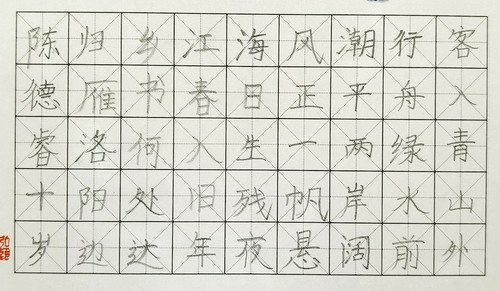 客入青山外
行舟绿水前
潮平两岸阔
风正一帆悬
海日生残夜
江春入旧年
乡书何处达
归雁洛阳边
陈德睿十岁